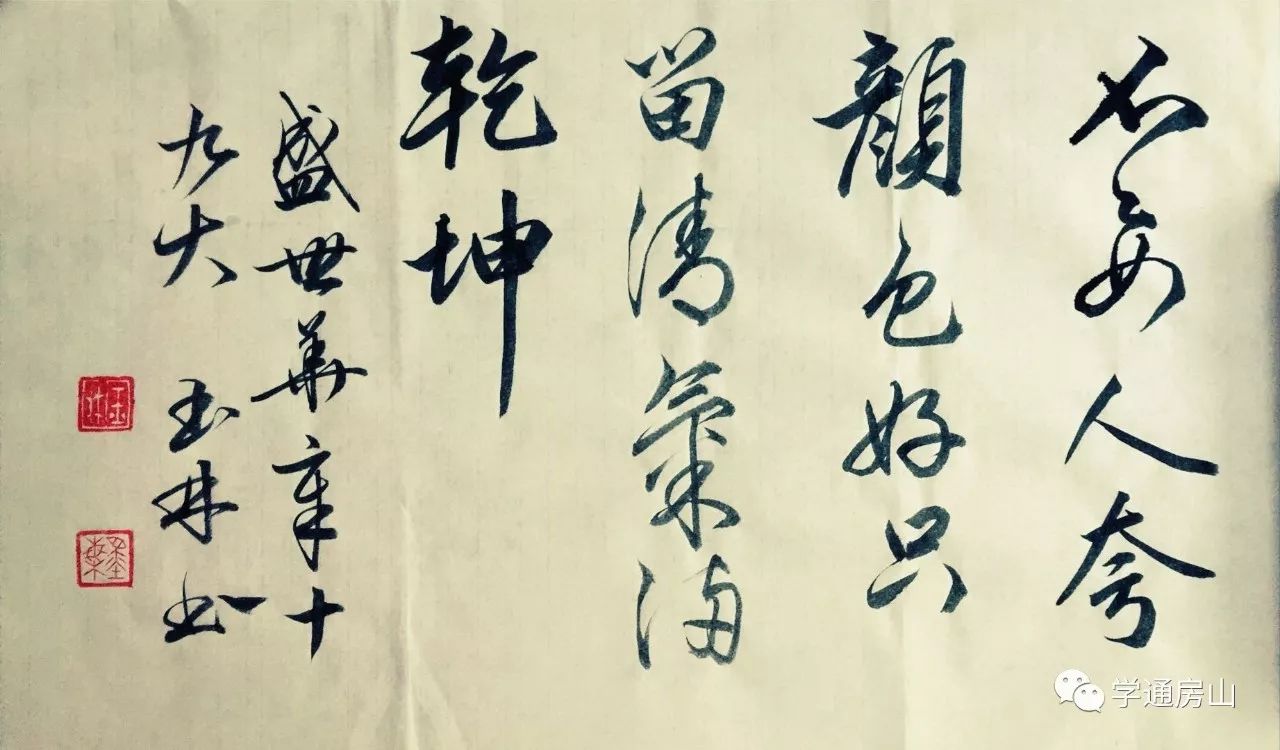 不要人夸
顔色好只
留清氣满
乾坤
盛世華章十
九大 玉林书
学通房山